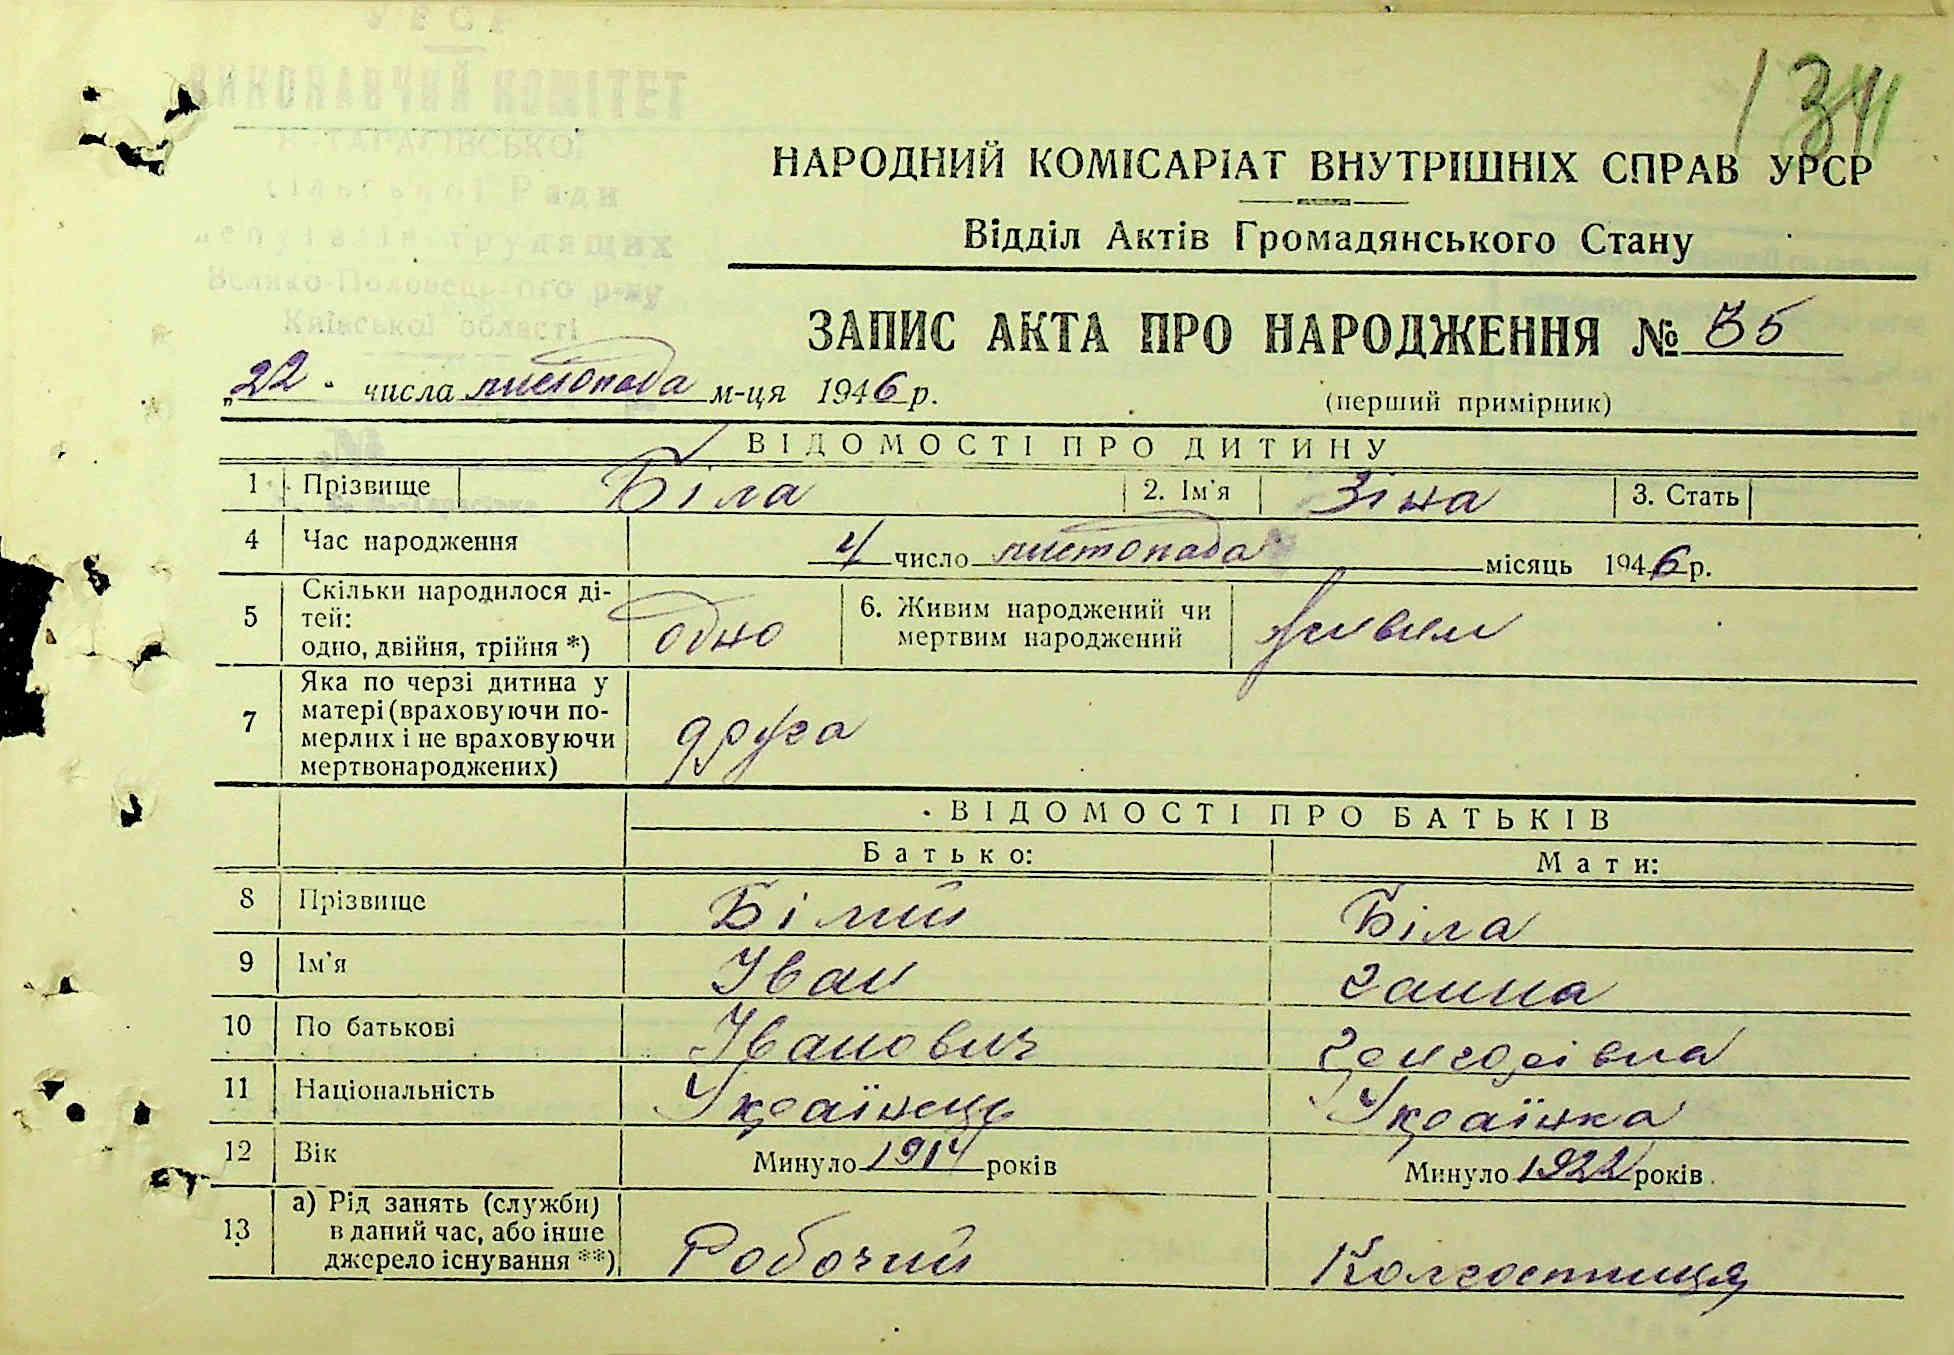 УРСР
ВИКОНАВЧИЙ КОМІТЕТ
сільської Ради
депутатів трудящих
Велико-Половецького р-ну
Київської області
134
НАРОДНИЙ КОМІСАРІАТ ВНУТРІШНІХ СПРАВ УРСР
Відділ Актів Громадянського Стану
ЗАПИС АКТА ПРО НАРОДЖЕННЯ № 35
„22" числа листопада м-ця 1946 р.
(перший примірник)
ВІДОМОСТІ ПРО ДИТИНУ
1 Прізвище Біла 2. Ім'я Зіна 3. Стать
4 Час народження 4 число листопада місяць 1946 р.
5 Скільки народилося ді-
тей:
одно, двійня, трійня *) одно
6. Живим народжений чи
мертвим народжений живим
7 Яка по черзі дитина у
матері (враховуючи по-
мерлих і не враховуючи
мертвонароджених) друга
ВІДОМОСТІ ПРО БАТЬКІВ
Батько: Мати:
8 Прізвище Білий Біла
9 Ім'я Іван Ганна
10 По батькові Іванович
11 Національність Українець Українка
12 Вік Минуло 1914 років Минуло 1922 років
13 а) Рід занять (служби)
в даний час, або інше
джерело існування **) Робочий Колгостниця